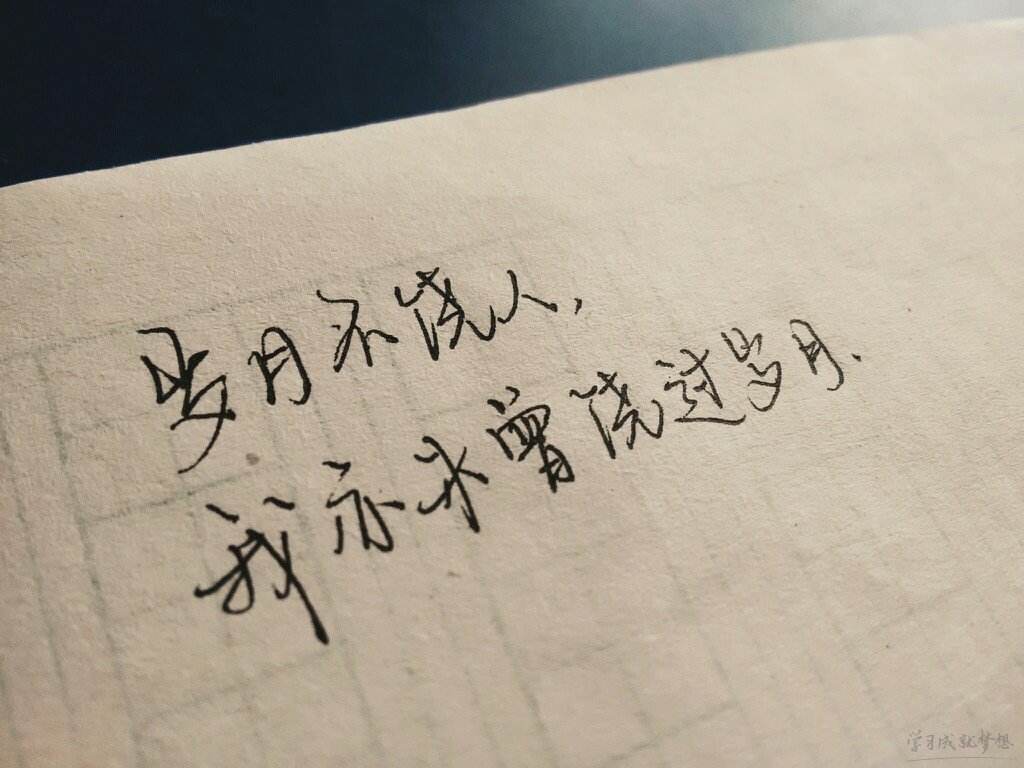 岁月不饶人,
我亦未曾饶过岁月.
学习成就梦想